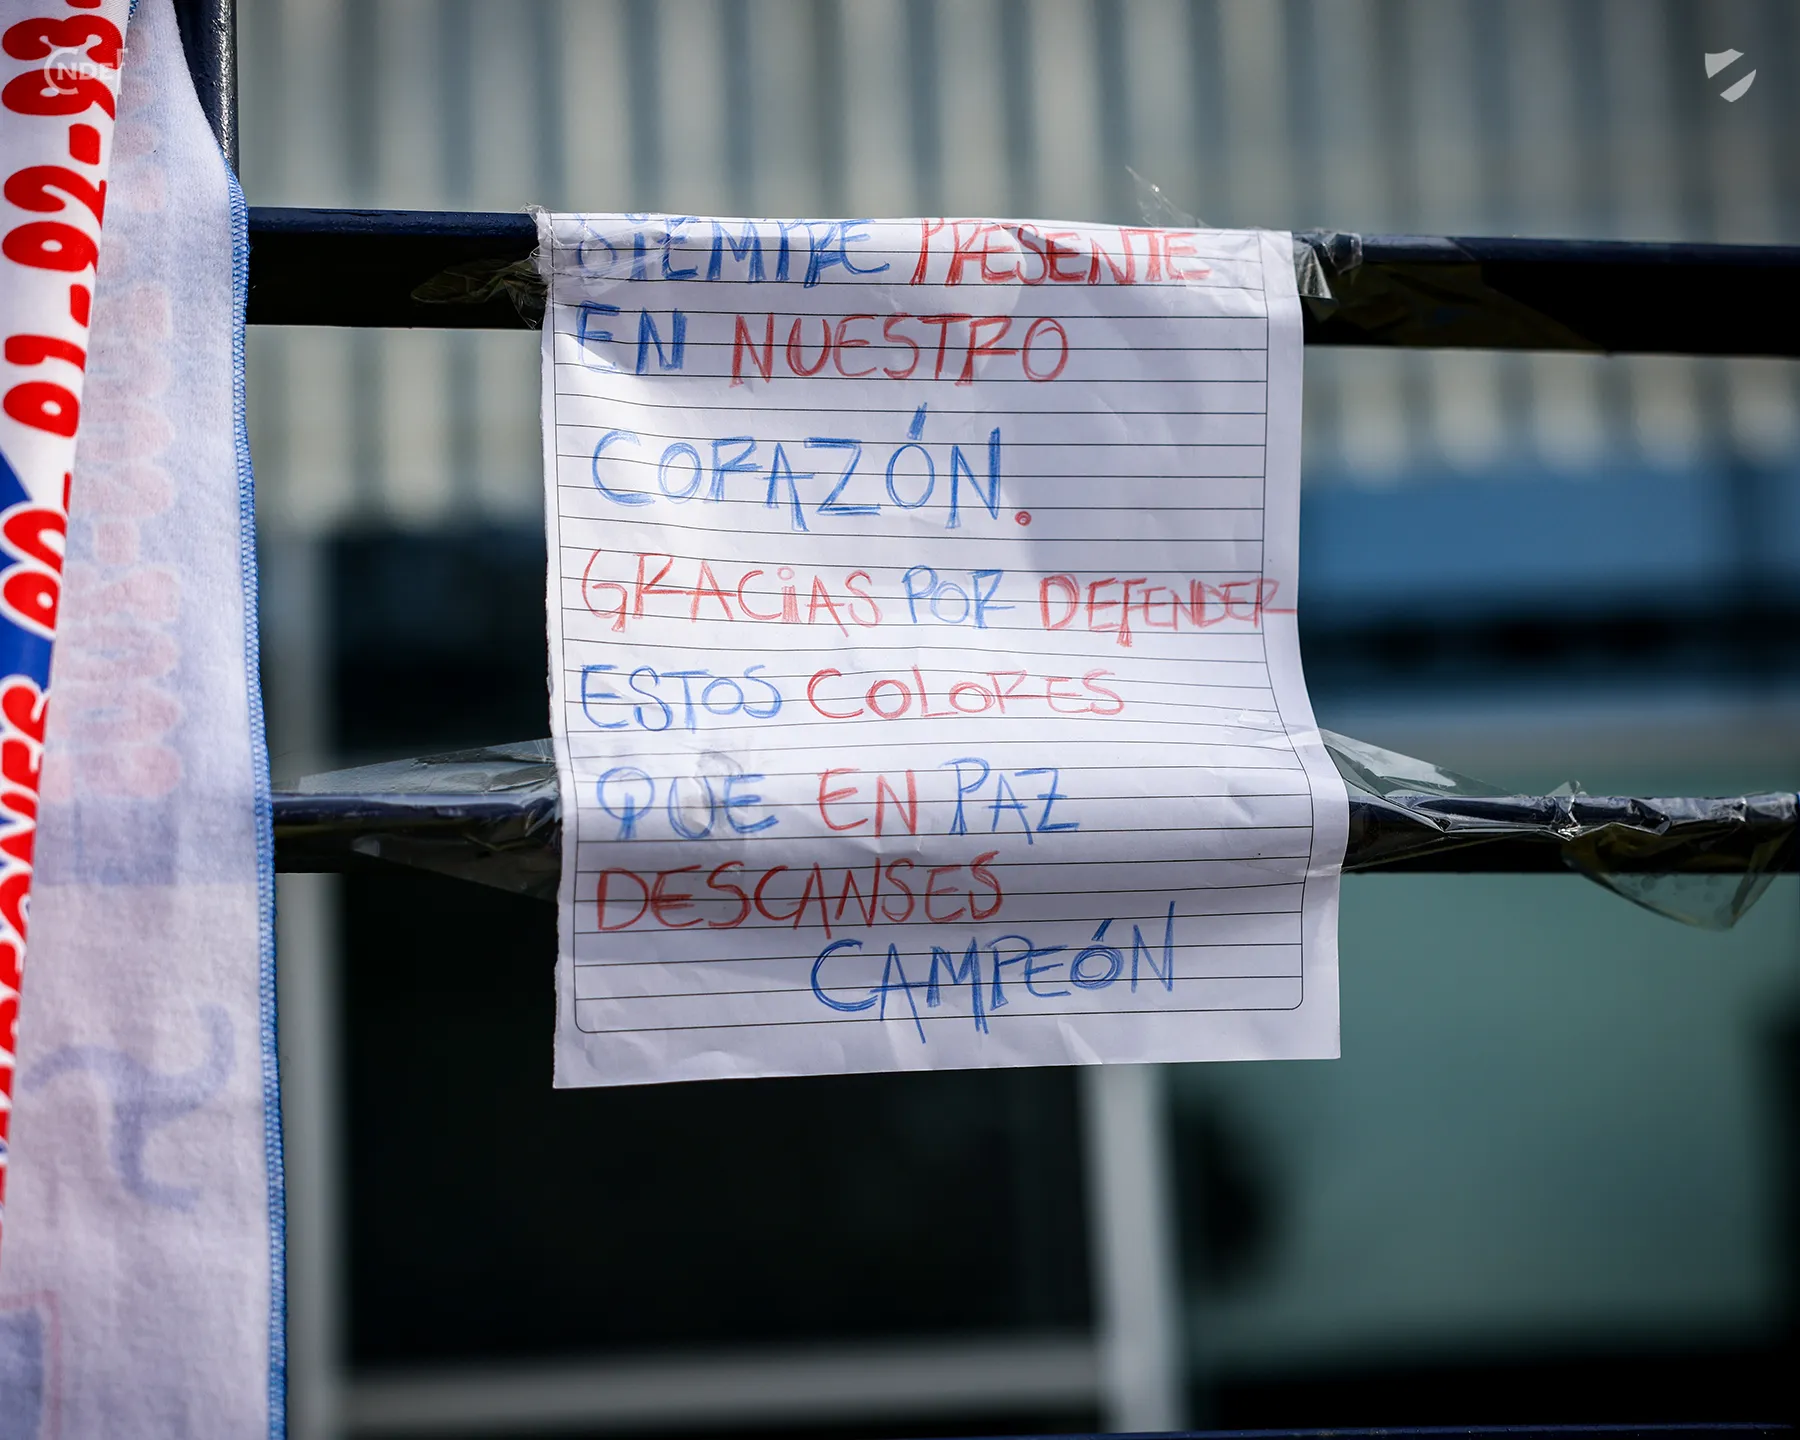 NDE
93-
92-
91-
90-
SIEMPRE PRESENTE
EN NUESTRO
CORAZÓN.
GRACiAS POR DEFENDER
ESTOS COLORES
QUE EN PAZ
DESCANSES
CAMPEÓN